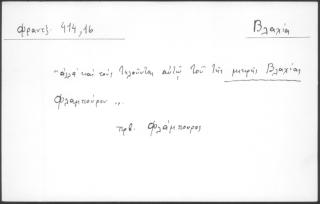 Φραντζ. 414,16 Βλαχία
"ἀλλὰ καὶ τοὺς τελοῦντας αὐτῷ τοῦ τῆς μικρῆς Βλαχίας
Φλαμπούρου „.
πρβ. Φλάμπουρος